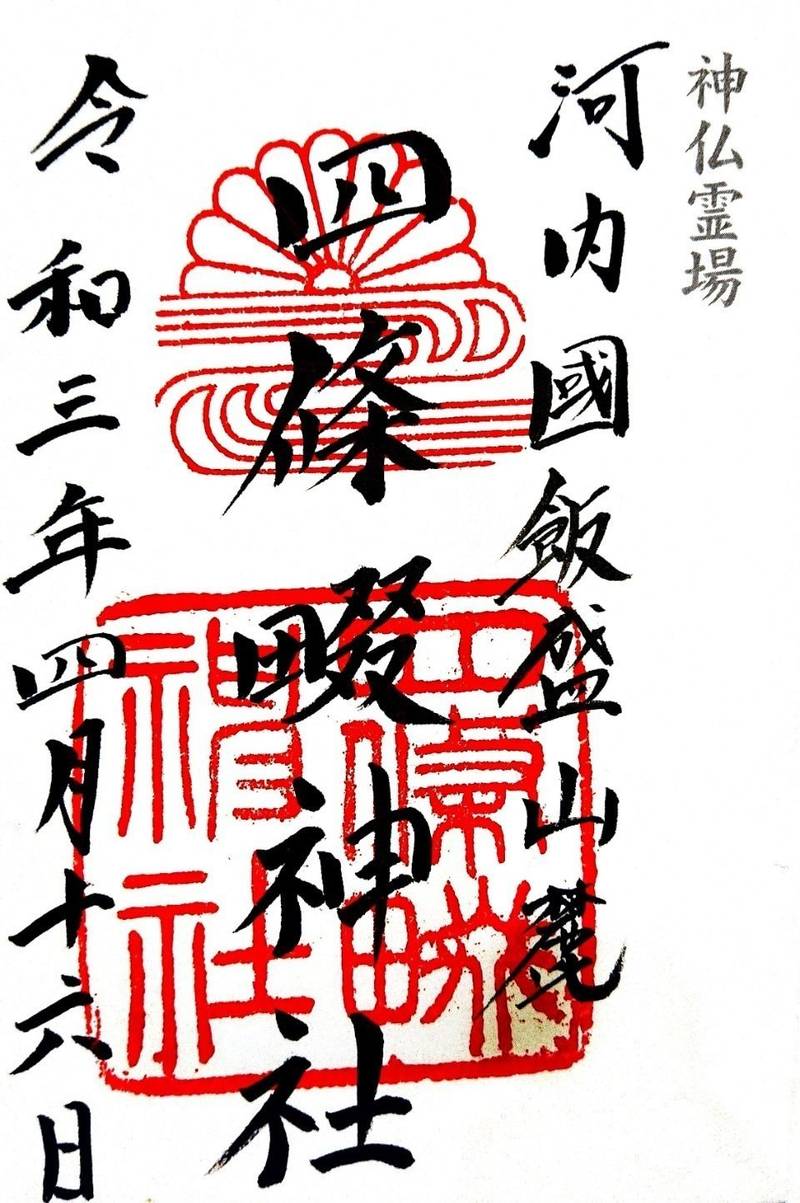 神仏霊場
河内國飯盛山麓
四條畷神社
令和三年四月十六日
四條畷神社